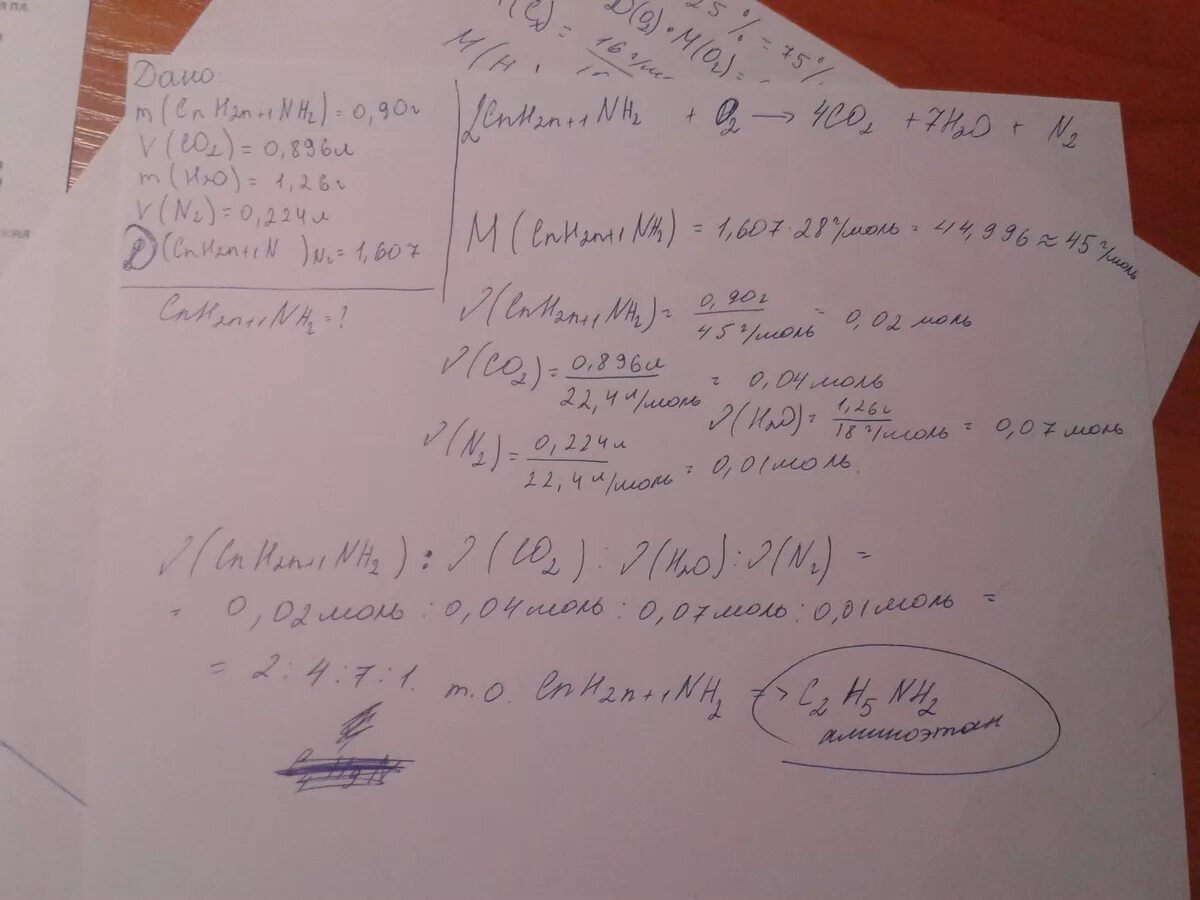 25% = 75%
D(O₂)·M(O₂) =
M(H
16 г/м
Дано:
m(CnH2n+1NH₂) = 0,90г
V(CO₂) = 0,896л
m(H₂O) = 1,26г
V(N₂) = 0,224л
D(CnH2n+1N )N₂ = 1,607
CnH2n+1NH₂ = ?
2CnH2n+1NH₂ + O₂ → 4CO₂ + 7H₂O + N₂
M(CnH2n+1NH₂) = 1,607·28г/моль = 44,996 ≈ 45г/моль
ν(CnH2n+1NH₂) = 0,90г / 45г/моль = 0,02 моль
ν(CO₂) = 0,896л / 22,4л/моль = 0,04моль
ν(H₂O) = 1,26г / 18г/моль = 0,07моль
ν(N₂) = 0,224л / 22,4л/моль = 0,01моль.
ν(CnH2n+1NH₂) : ν(CO₂) : ν(H₂O) : ν(N₂) =
= 0,02моль : 0,04моль : 0,07моль : 0,01моль =
= 2:4:7:1. т.о. CnH2n+1NH₂ => C₂H₅NH₂
аминоэтан